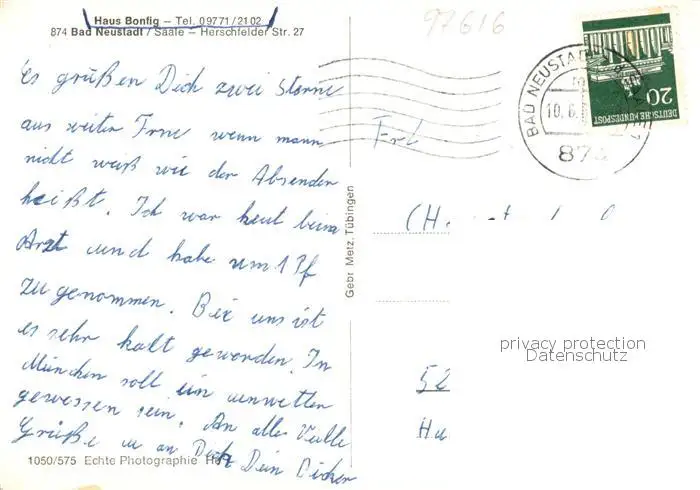 Haus Bonfig – Tel. 09771/2102
874 Bad Neustadt / Saale – Herschfelder Str. 27
97616
es grüßen Dich zwei Sterne
aus weiter Frne wenn mann
nicht weiß wie der Absender
heißt. Ich war heut beim
Arzt und habe um 1 Pf
zu genommen. Bei uns ist
es sehr kalt geworden. In
München soll ein unwetter
gewessen sein. An alle Viele
Grüße u an Dich Dein Dicker
1050/575 Echte Photographie
Gebr. Metz, Tübingen
BAD NEUSTADT
10. 6.
874
20
DEUTSCHE BUNDESPOST
Frl
(H
52
Hu
privacy protection
Datenschutz